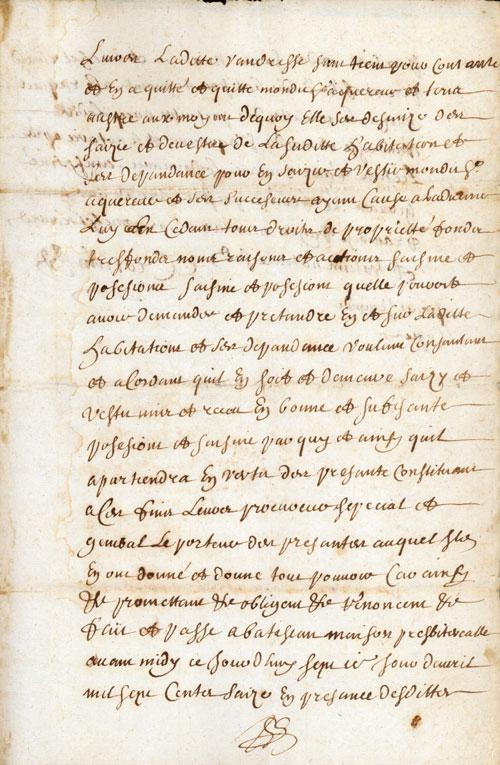 Laditte vandresse sent tient pour Contante
et En a quitté et quitte mondit Sr aquereur et tous
autre aux moyen dequoy Elle ses desmize des
saizie et devestue de Lasuditte habitation et
ses depandance pour En saizir et vestir mondit Sr
aquereur et ses successeurs ayant Cause
Luy Cedant tous droits de propriété fonds
tresfonds noms raisons et actions saisine et
posesions saisine et posesions quelle pouvoit
avoir demander et pretandre En et sur Laditte
habitations et ses depandance voulant Consantant
et acordant quil En soit et demeure saizy et
vestu mis et receu En bonne et sufisante
posesions et saisine par quy et ainsy quil
apartiendra En vertu des presante Constituant
a Ces fins Leurs procureur sepecial et
general Le porteur des presantes auquel Elles
En ont donné et donne tout pouvoir Car ainsy
&c promettant &c obligent &c renoncent &c
fait et passé a batiscan maison presbiteralle
avant midy ce jourdhuy sept ie jour davril
mil sept Centes saize En presance desdittes